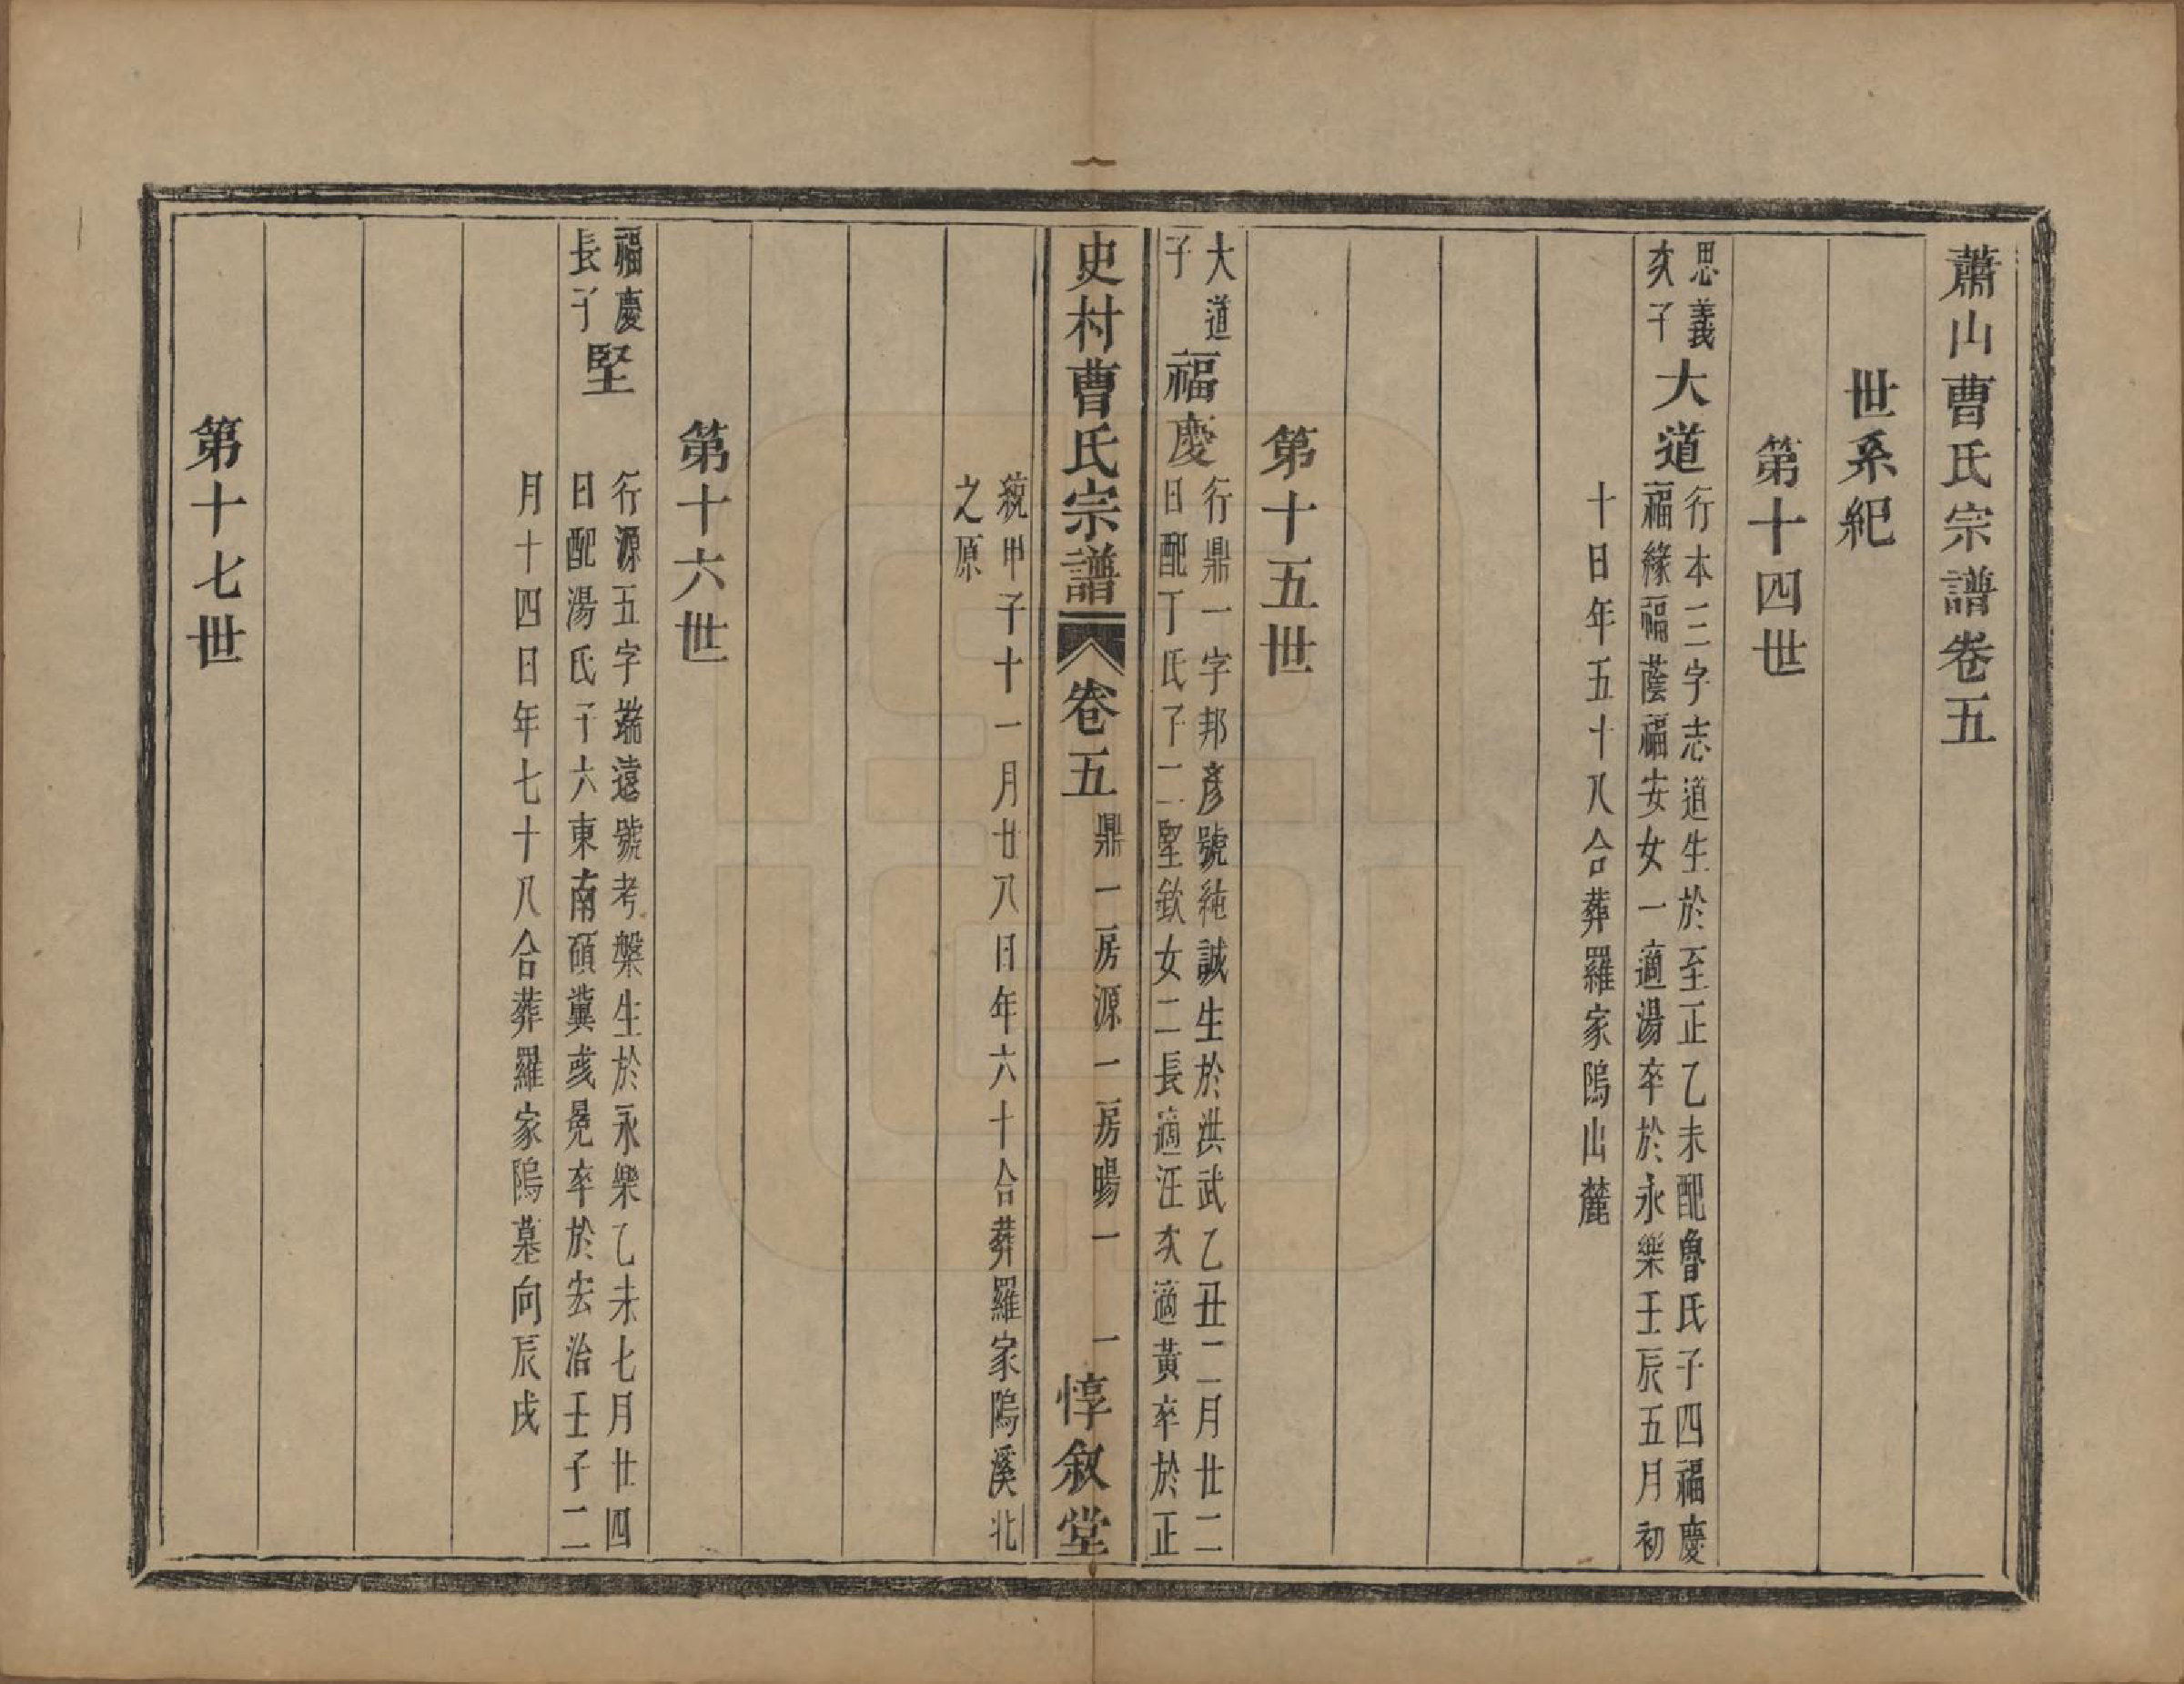 蕭山曹氏宗譜卷五
世系紀
第十四世
思義
次子
大道
行本三字志道生於至正乙未配魯氏子四福慶
福緣福蔭福安女一適湯卒於永樂壬辰五月初
十日年五十八合葬羅家塢山麓
第十五世
大道
子
福慶
行鼎一字邦彥號純誠生於洪武乙丑二月廿二
日配丁氏子二堅欽女二長適汪次適黃卒於正
統甲子十一月廿八日年六十合葬羅家塢溪北
之原
史村曹氏宗譜
卷五
鼎一房源一房暘一
一
惇敘堂
第十六世
福慶
長子
堅
行源五字端遠號考槃生於永樂乙未七月廿四
日配湯氏子六東南碩冀彧冕卒於宏治壬子二
月十四日年七十八合葬羅家塢墓向辰戌
第十七世